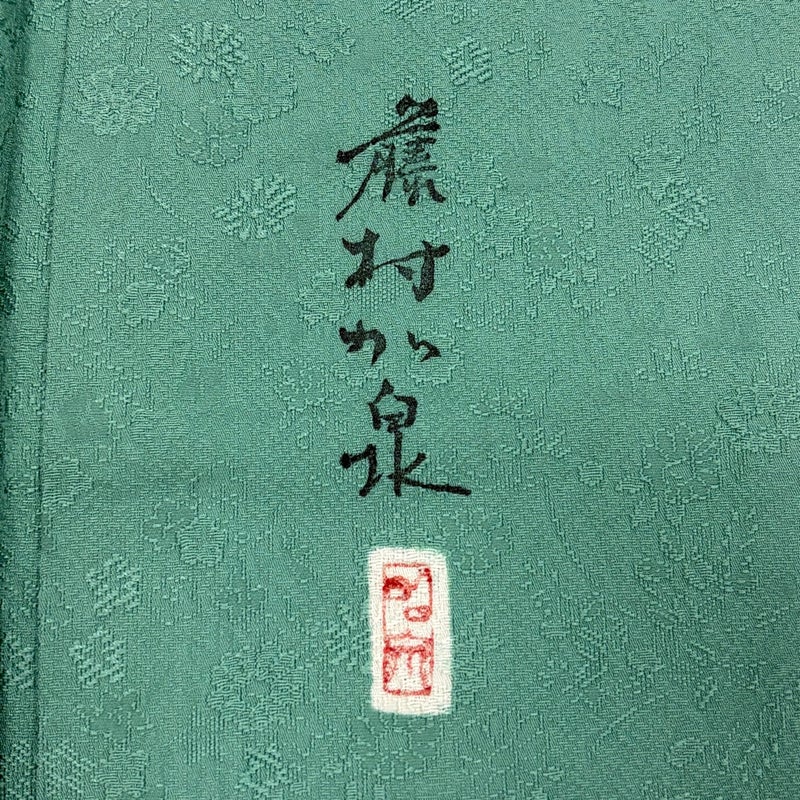 藤村加泉